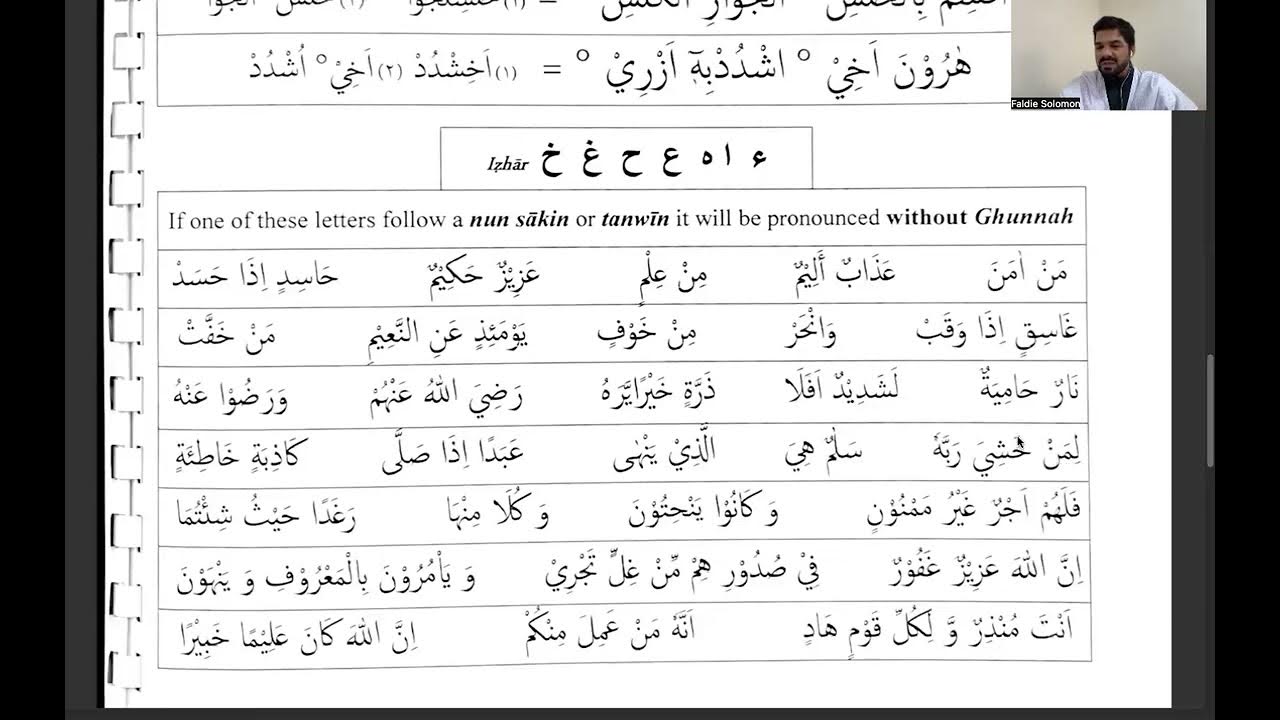 هٰرُوْنَ اَخِيْ ° اشْدُدْبِهٖٓ اَزْرِيْ ° = (۱) اَخِشْدُدْ (۲) اَخِيْ ° اُشْدُدْ
Faldie Solomon
ء ا ه ع ح غ خ Iẓhār
If one of these letters follow a nun sākin or tanwīn it will be pronounced without Ghunnah
مَنْ اٰمَنَ عَذَابٌ أَلِيْمٌ مِنْ عِلْمٍ عَزِيْزٌ حَكِيْمٌ حَاسِدٍ اِذَا حَسَدْ
غَاسِقٍ اِذَا وَقَبْ وَانْحَرْ مِنْ خَوْفٍ يَوْمَئِذٍ عَنِ النَّعِيْمِ مَنْ خَفَّتْ
نَارٌ حَامِيَةٌ لَشَدِيْدٌ اَفَلَا ذَرَّةٍ خَيْرًايَّرَهُ رَضِيَ اللهُ عَنْهُمْ وَرَضُوْا عَنْهُ
لِمَنْ خَشِيَ رَبَّهٗ سَلٰمٌ هِيَ الَّذِيْ يَنْهٰى عَبَدًا اِذَا صَلَّى كَاذِبَةٍ خَاطِئَةٍ
فَلَهُمْ اَجْرٌ غَيْرُ مَمْنُوْنٍ وَ كَانُوْا يَنْحِتُوْنَ وَ كُلَا مِنْهَا رَغَدًا حَيْثُ شِئْتُمَا
اِنَّ اللهَ عَزِيْزٌ غَفُوْرٌ فِيْ صُدُوْرِ هِمْ مِّنْ غِلٍّ تَجْرِيْ وَ يَاْمُرُوْنَ بِالْمَعْرُوْفِ وَ يَنْهَوْنَ
اَنْتَ مُنْذِرٌ وَّ لِكُلِّ قَوْمٍ هَادٍ اَنَّهٗ مَنْ عَمِلَ مِنْكُمْ اِنَّ اللهَ كَانَ عَلِيْمًا خَبِيْرًا